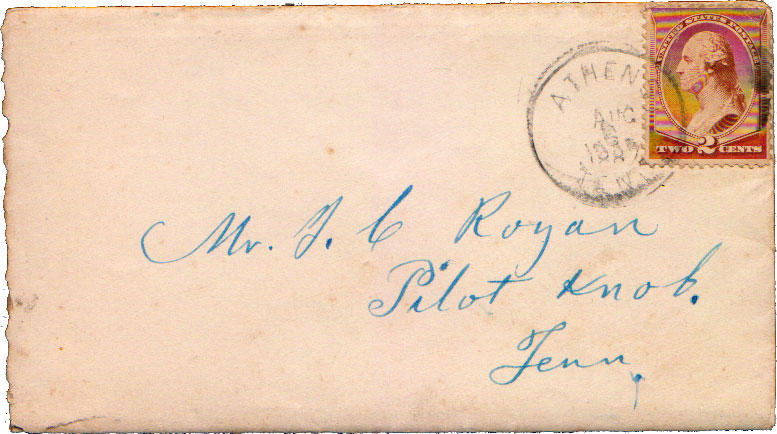 UNITED STATES POSTAGE
TWO 2 CENTS
ATHENS
AUG
TENN
Mr. J. C Rogan
Pilot Knob.
Tenn.